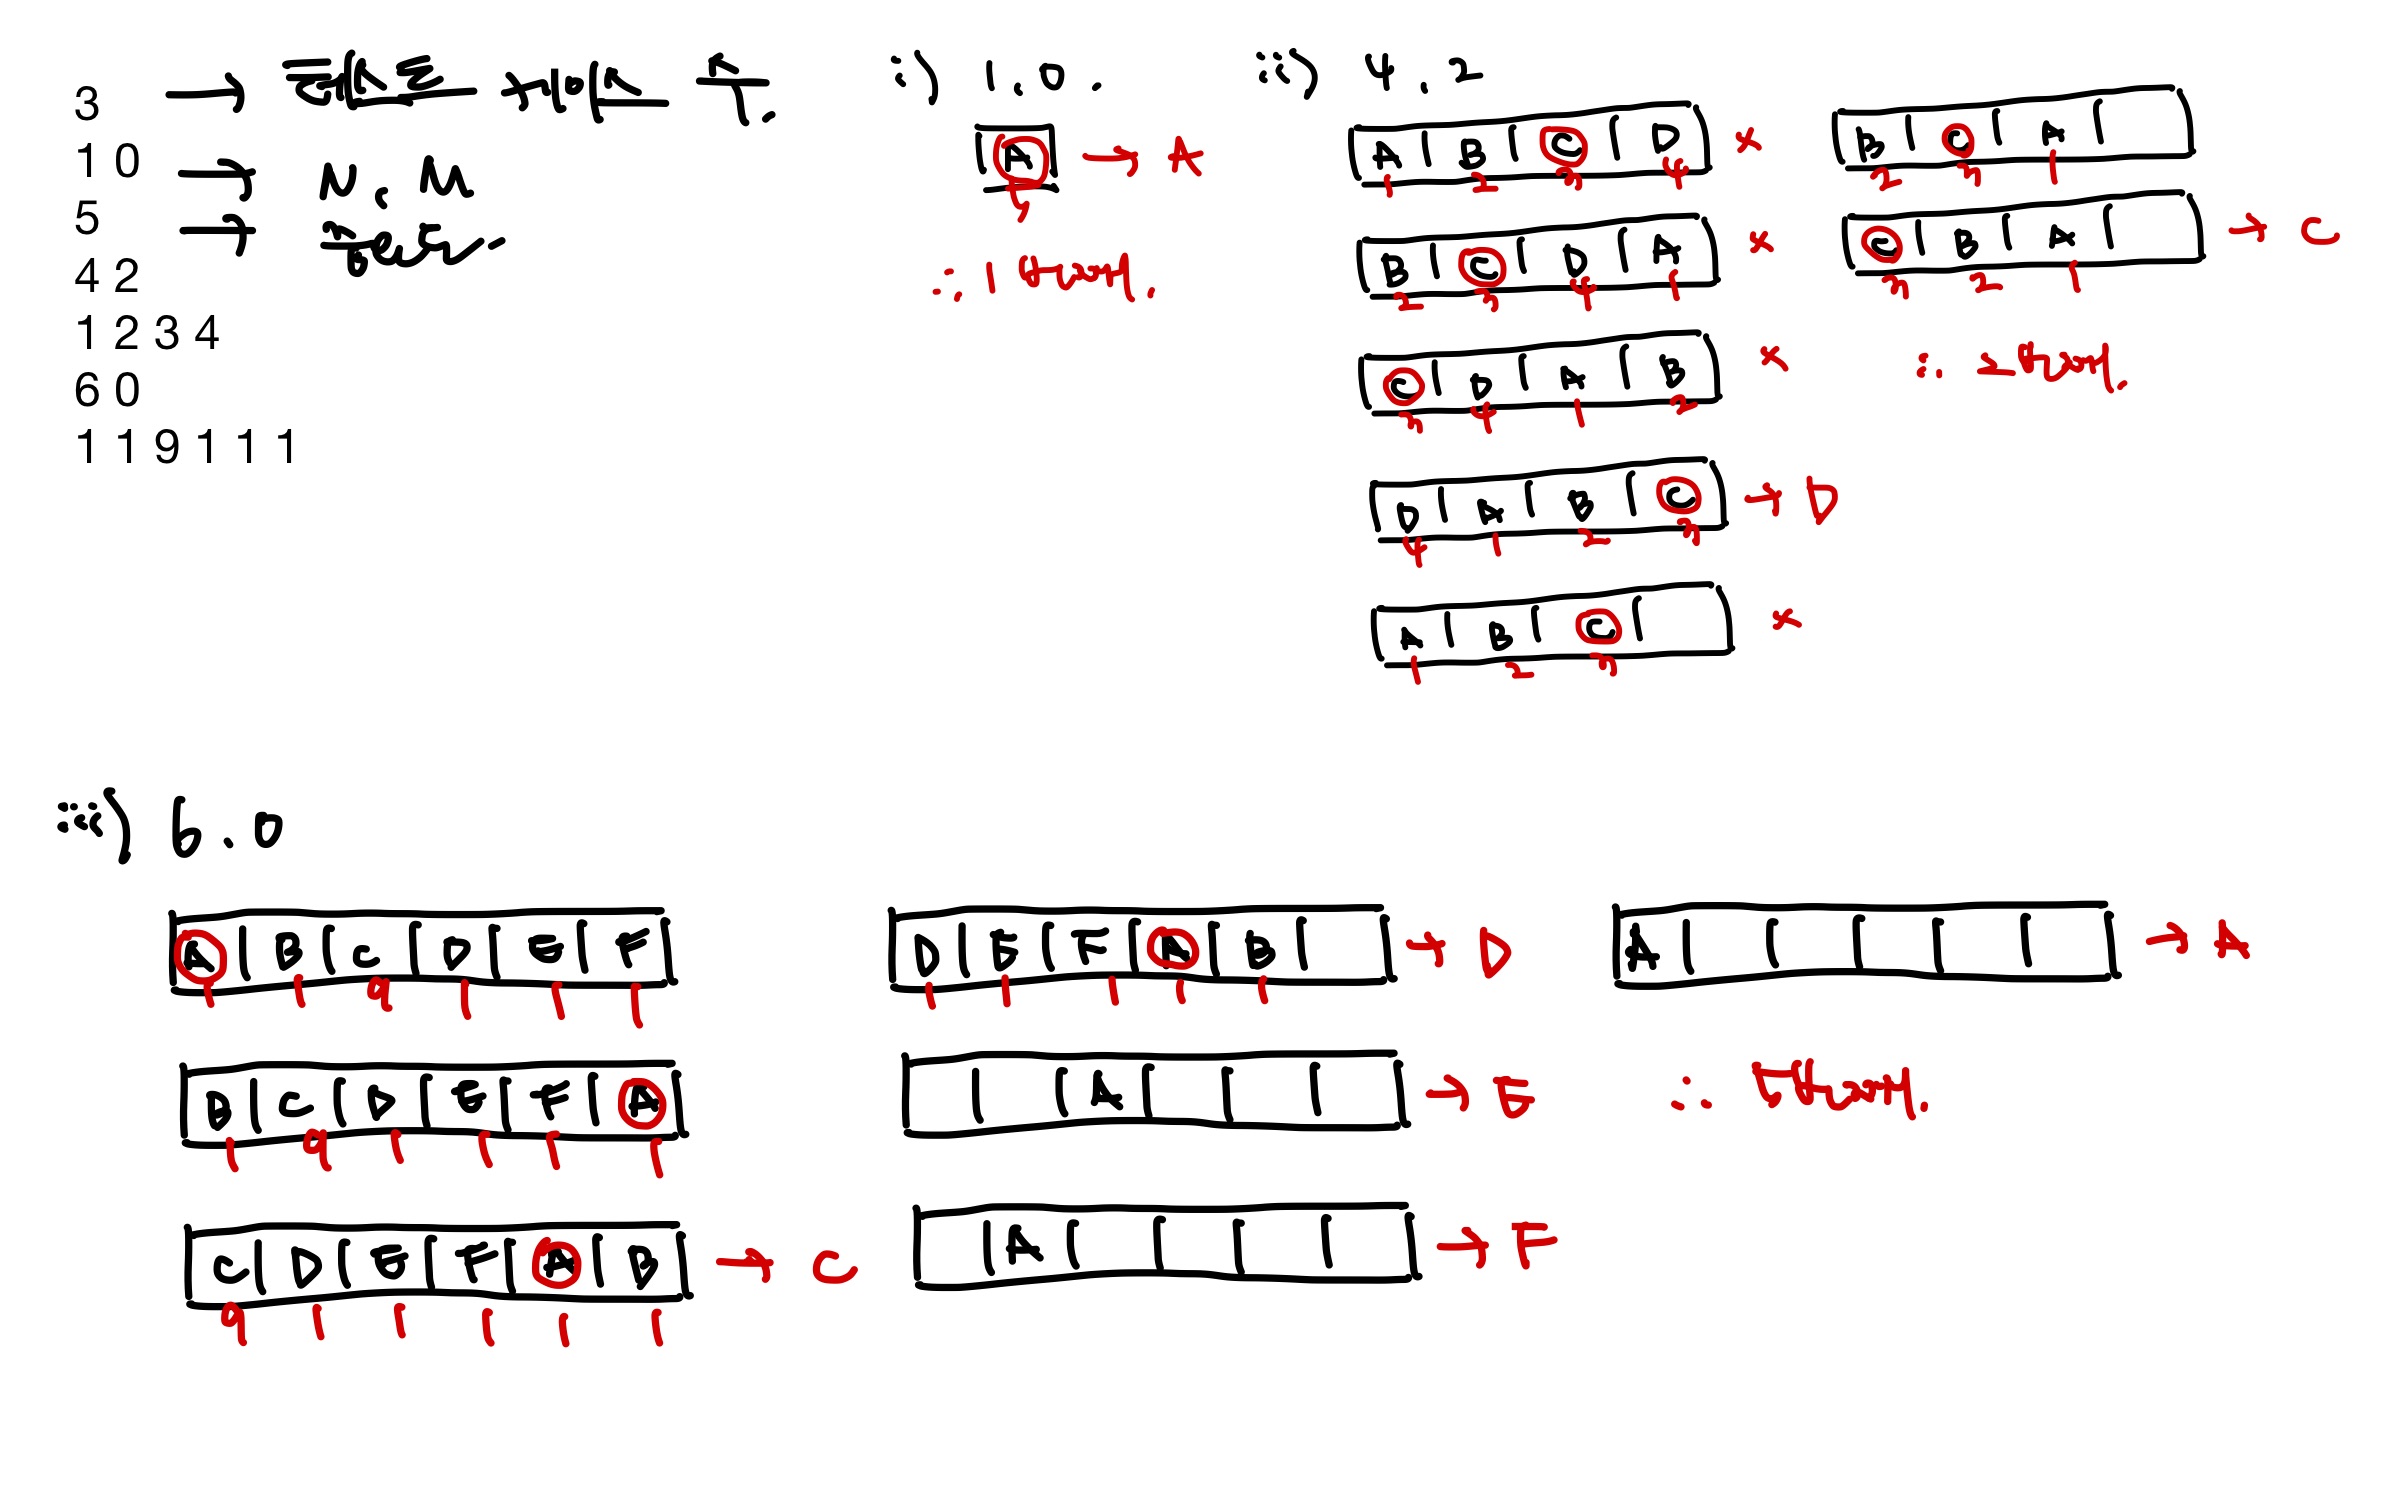 3 → 테스트 케이스 수.
1 0 → N, M
5 → 중요도
4 2
1 2 3 4
6 0
1 1 9 1 1 1
i) 1, 0.
A → A
5
∴ 1번째.
ii) 4, 2
A B C D ×
1 2 3 4
B C D A ×
2 3 4 1
C D A B ×
3 4 1 2
D A B C → D
4 1 2 3
A B C ×
1 2 3
B C A
2 3 1
C B A → C
3 2 1
∴ 2번째.
iii) 6, 0
A B C D E F
1 1 9 1 1 1
B C D E F A
1 9 1 1 1 1
C D E F A B → C
9 1 1 1 1 1
D E F A B → D
1 1 1 1 1
A → E
A → F
A → A
∴ 5번째.